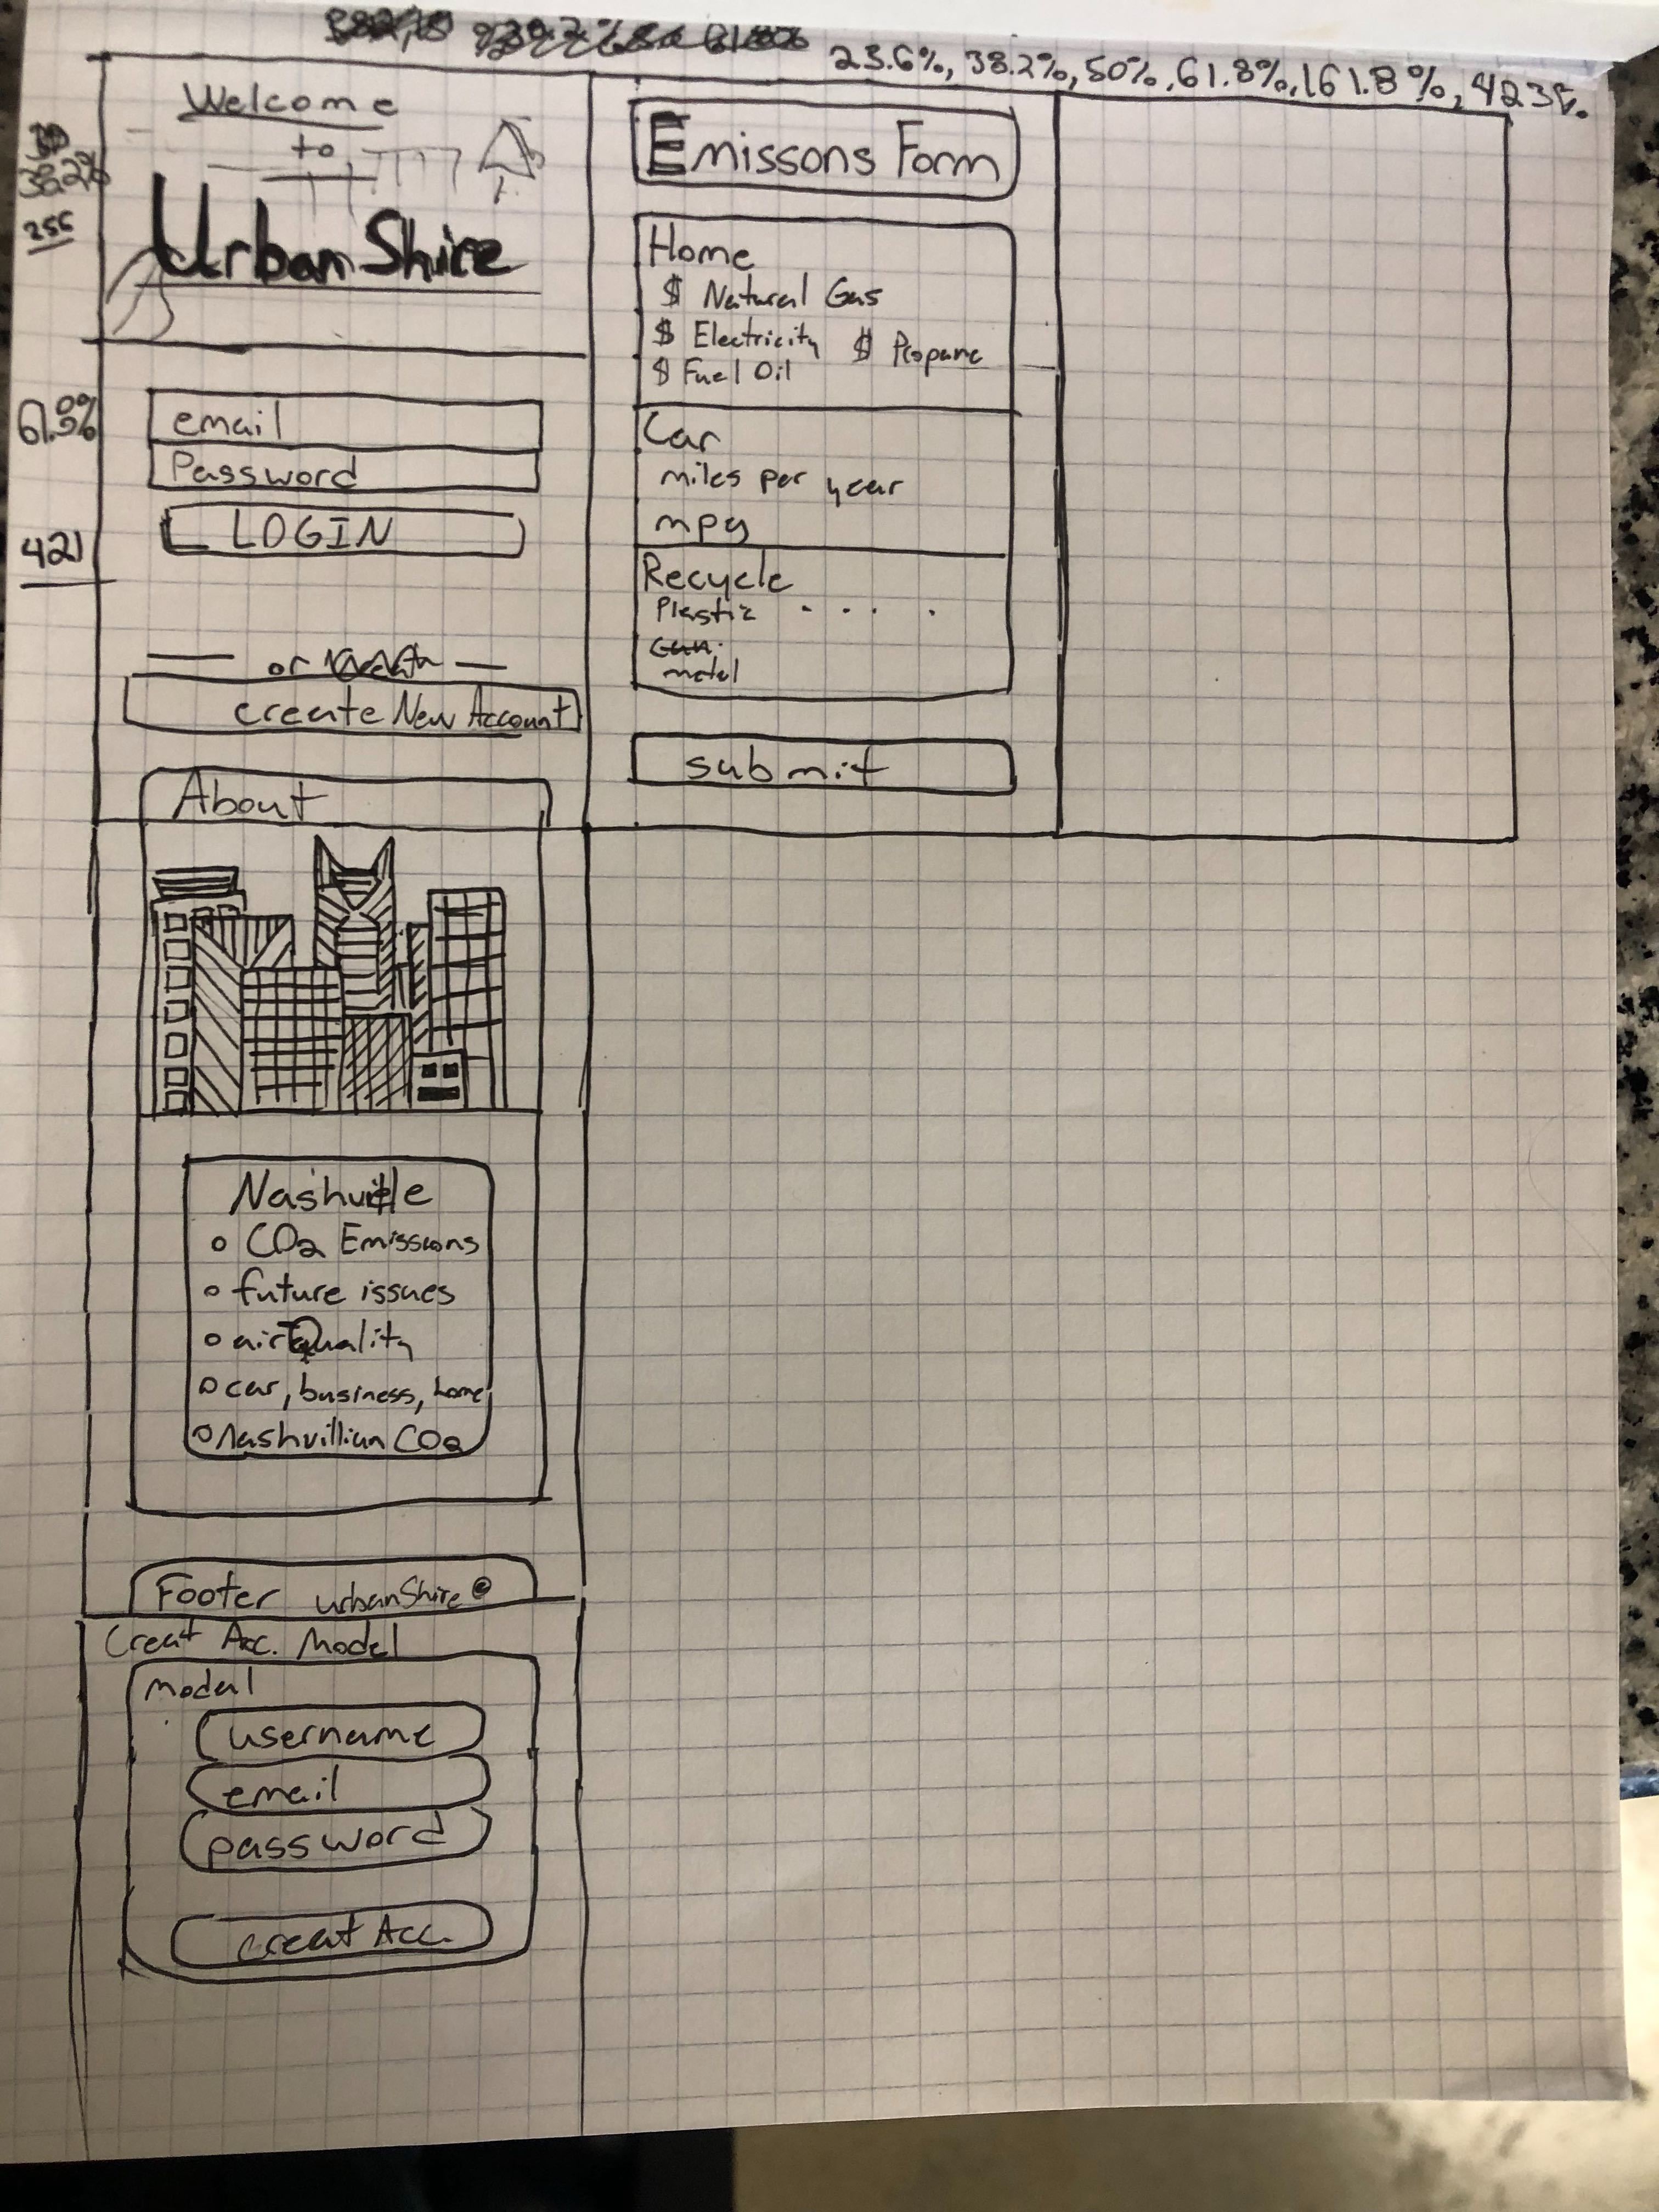 23.6%, 38.2%, 50%, 61.8%, 161.8%, 423%
Welcome
to
Urban Shire
38.2%
256
61.8%
421
email
Password
LOGIN
or
create New Account
About
Nashville
CO2 Emissions
future issues
air Quality
car, business, home
Nashvillian CO2
Footer urbanShire ©
Creat Acc. Model
modal
username
email
password
creat Acc.
Emissons Form
Home
$ Natural Gas
$ Electricity $ Propane
$ Fuel Oil
Car
miles per year
mpg
Recycle
Plastic . . . .
metal
submit